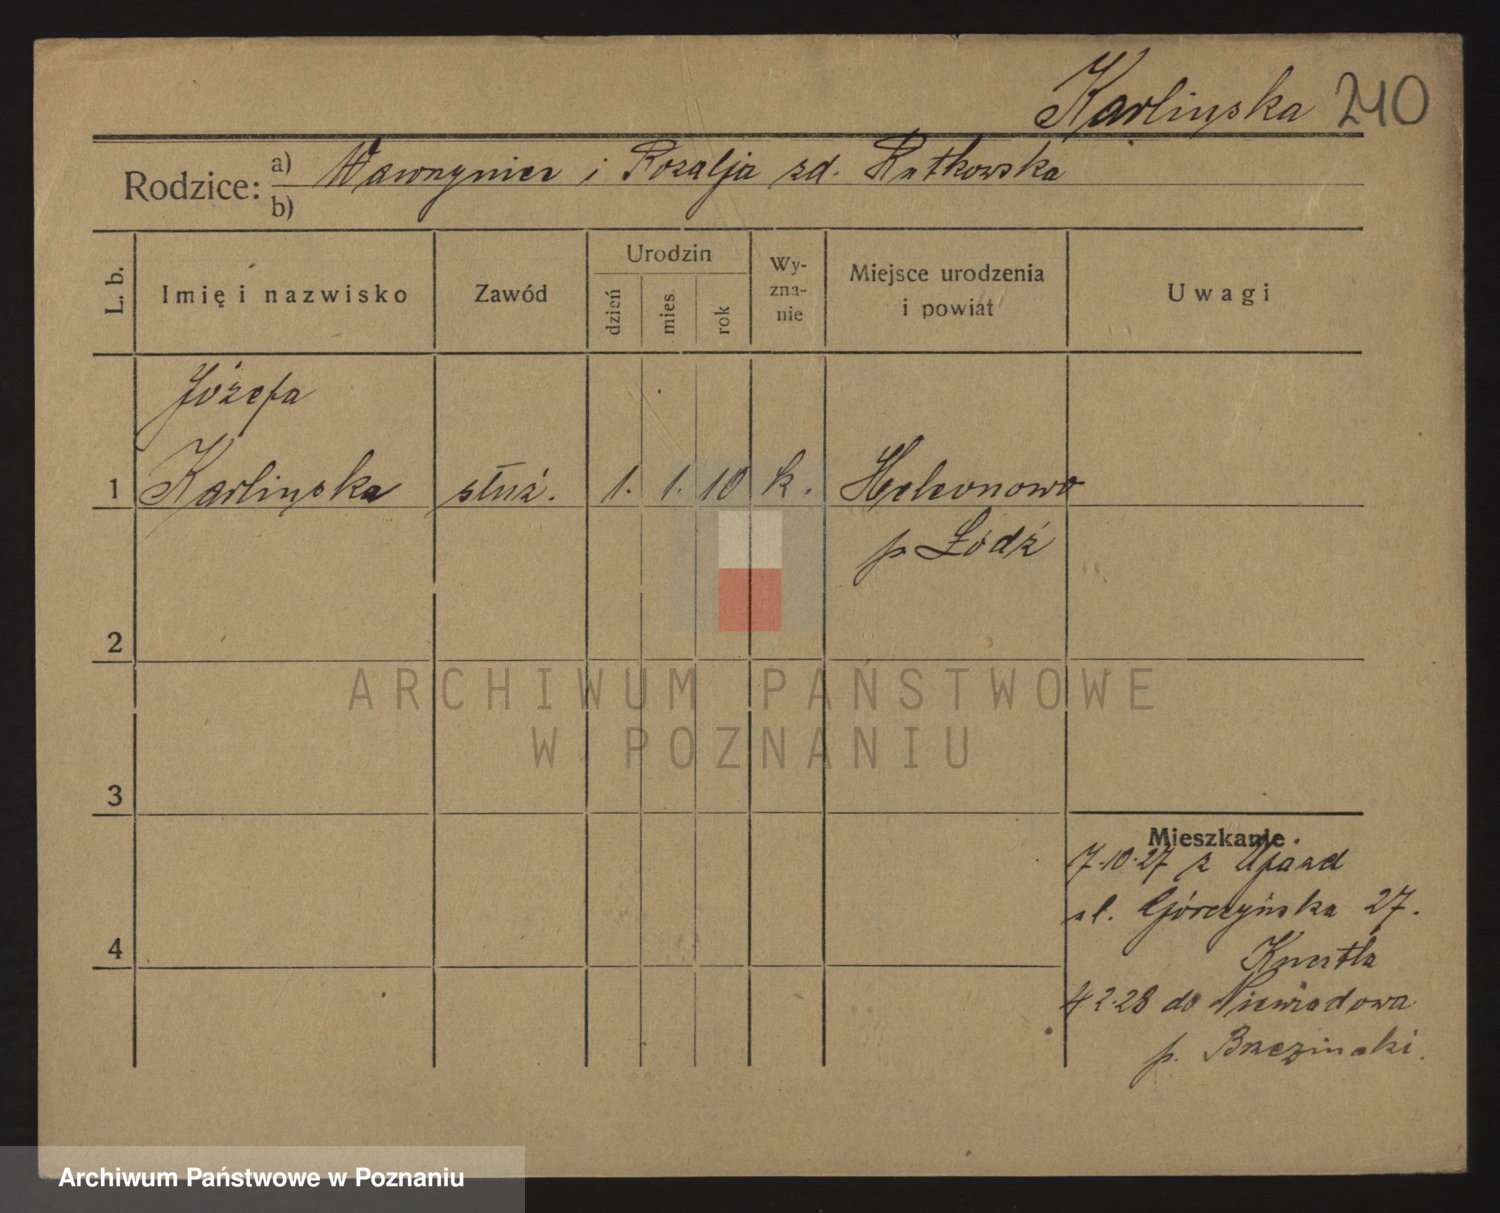 Karlińska 240
Rodzice: a) Wawrzyniec i Rozalja zd. Rutkowska
b)
L. b.
Imię i nazwisko
Zawód
Urodzin
dzień
mies.
rok
Wy-
zna-
nie
Miejsce urodzenia
i powiat
Uwagi
Józefa
1 Karlińska służ. 1. 1. 10 k. Helenowo
p Łódź
2
3
4
Mieszkanie
7.10.27 z Ujazd
ul. Górczyńska 27.
4 2.28 do Niewiadowa
p. Brzezinski.
ARCHIWUM PAŃSTWOWE
W POZNANIU
Archiwum Państwowe w Poznaniu